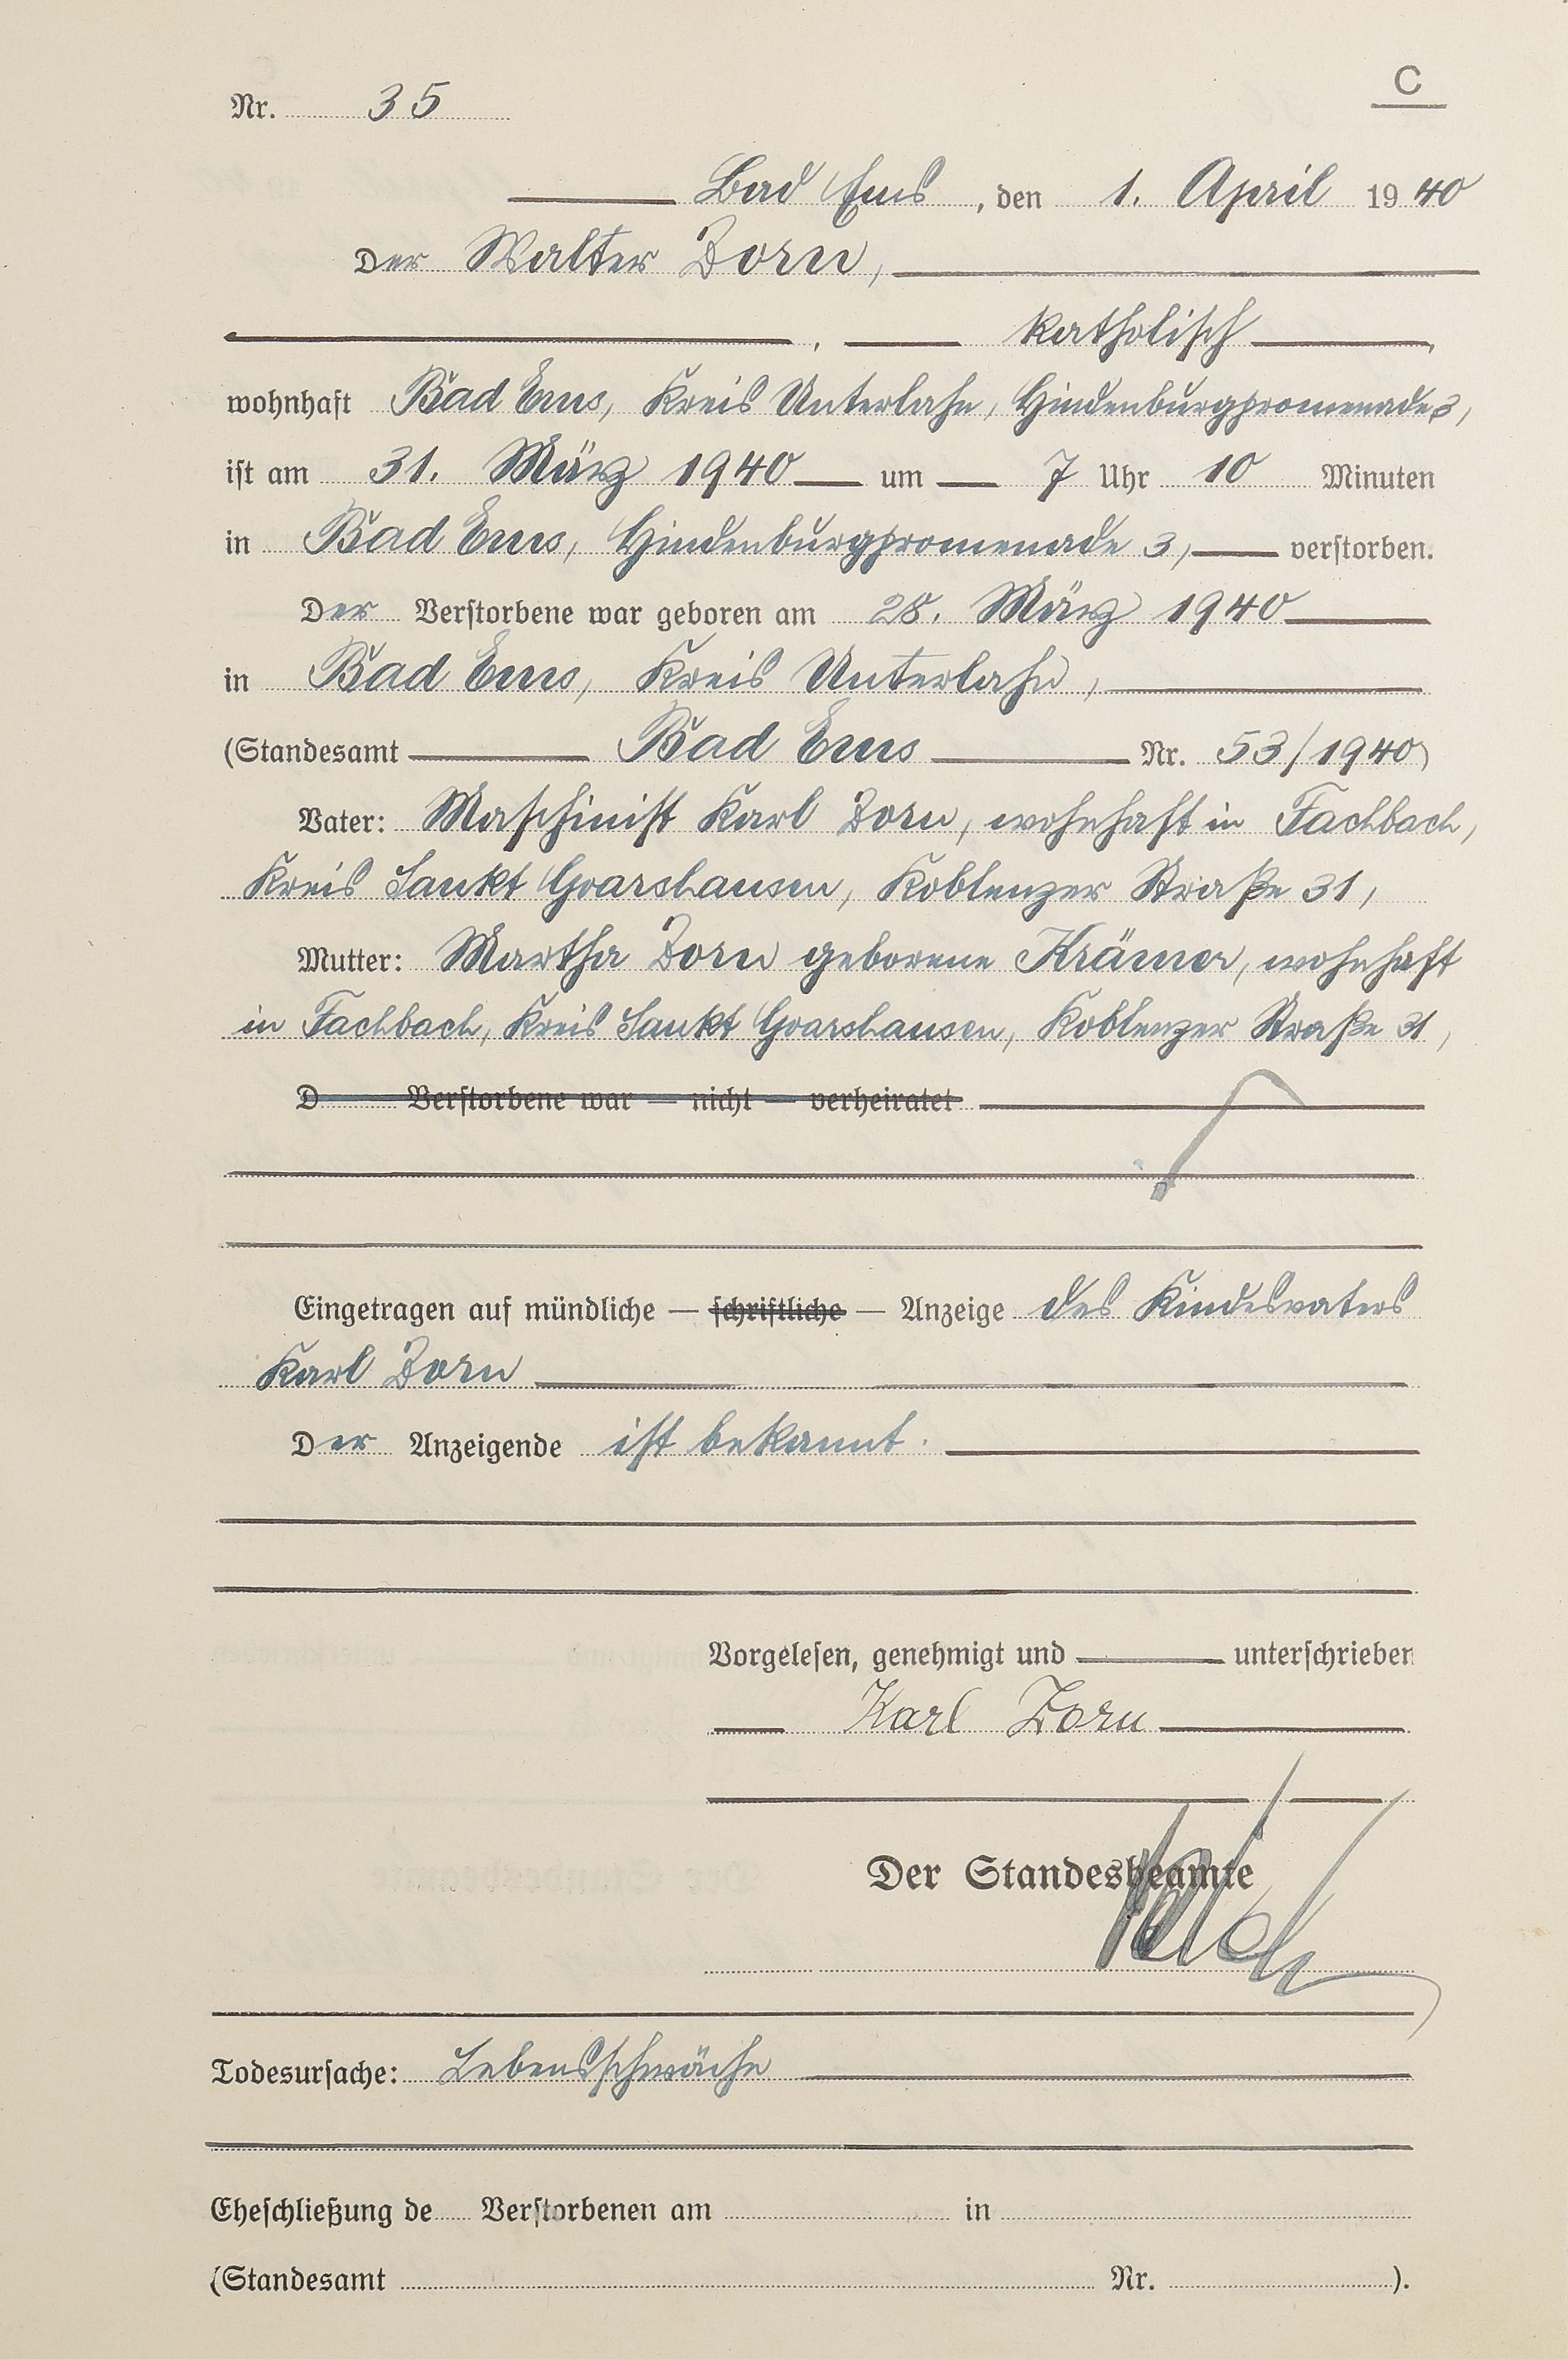 C
Nr. 35
Bad Ems, den 1. April 1940
Der Walter Zorn,
, katholisch,
wohnhaft Bad Ems, Kreis Unterlahn, Hindenburgpromenade 3,
ist am 31. März 1940 um 7 Uhr 10 Minuten
in Bad Ems, Hindenburgpromenade 3, verstorben.
Der Verstorbene war geboren am 28. März 1940
in Bad Ems, Kreis Unterlahn,
(Standesamt Bad Ems Nr. 53/1940)
Vater: Maschinist Karl Zorn, wohnhaft in Fachbach,
Kreis Sankt Goarshausen, Koblenzer Straße 31,
Mutter: Martha Zorn geborene Krämer, wohnhaft
in Fachbach, Kreis Sankt Goarshausen, Koblenzer Straße 31,
D Verstorbene war — nicht — verheiratet
Eingetragen auf mündliche — schriftliche — Anzeige des Kindesvaters
Karl Zorn
Der Anzeigende ist bekannt.
Vorgelesen, genehmigt und unterschrieben
Karl Zorn
Der Standesbeamte
Todesursache: Lebensschwäche
Eheschließung de Verstorbenen am in
(Standesamt Nr. ).